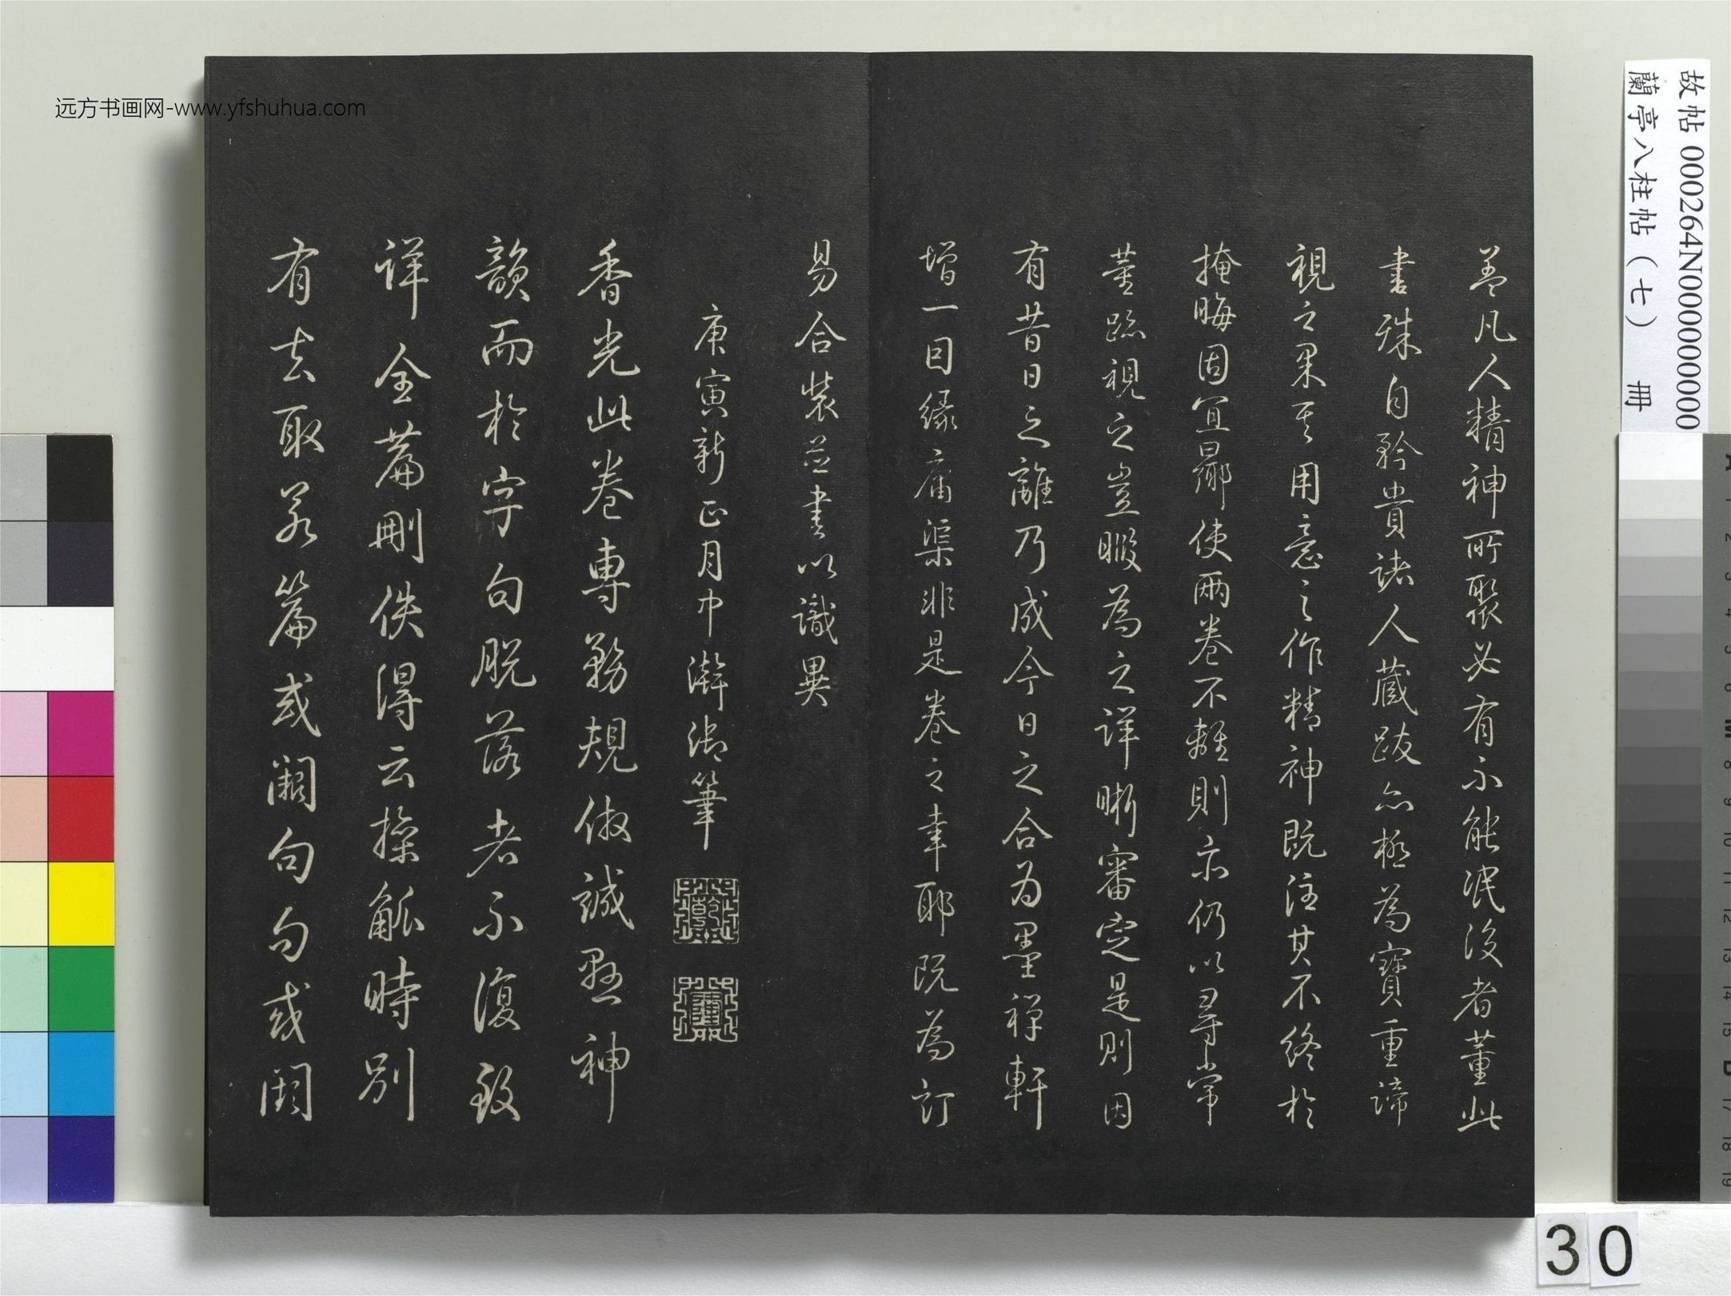 盖凡人精神所聚必有不能泯没者董此
書殊自矜貴諸人藏跋亦極為寶重諦
視之果其用意之作精神既注其不終於
掩晦固宜嚮使兩卷不離則亦仍以尋常
董蹟視之豈暇為之詳晰審定是則因
有昔日之離乃成今日之合為墨禪軒
增一目緣庸渠非是卷之幸耶既為訂
易合裝並書以識異
庚寅新正月中澣御筆
香光此卷專務規倣誠懸神
韻而於字句脫落者不復致
詳全篇刪佚得云操觚時別
有去取若篇或闕句句或闕
远方书画网-www.yfshuhua.com
故帖 000264N000000000
蘭亭八柱帖（七） 冊
30